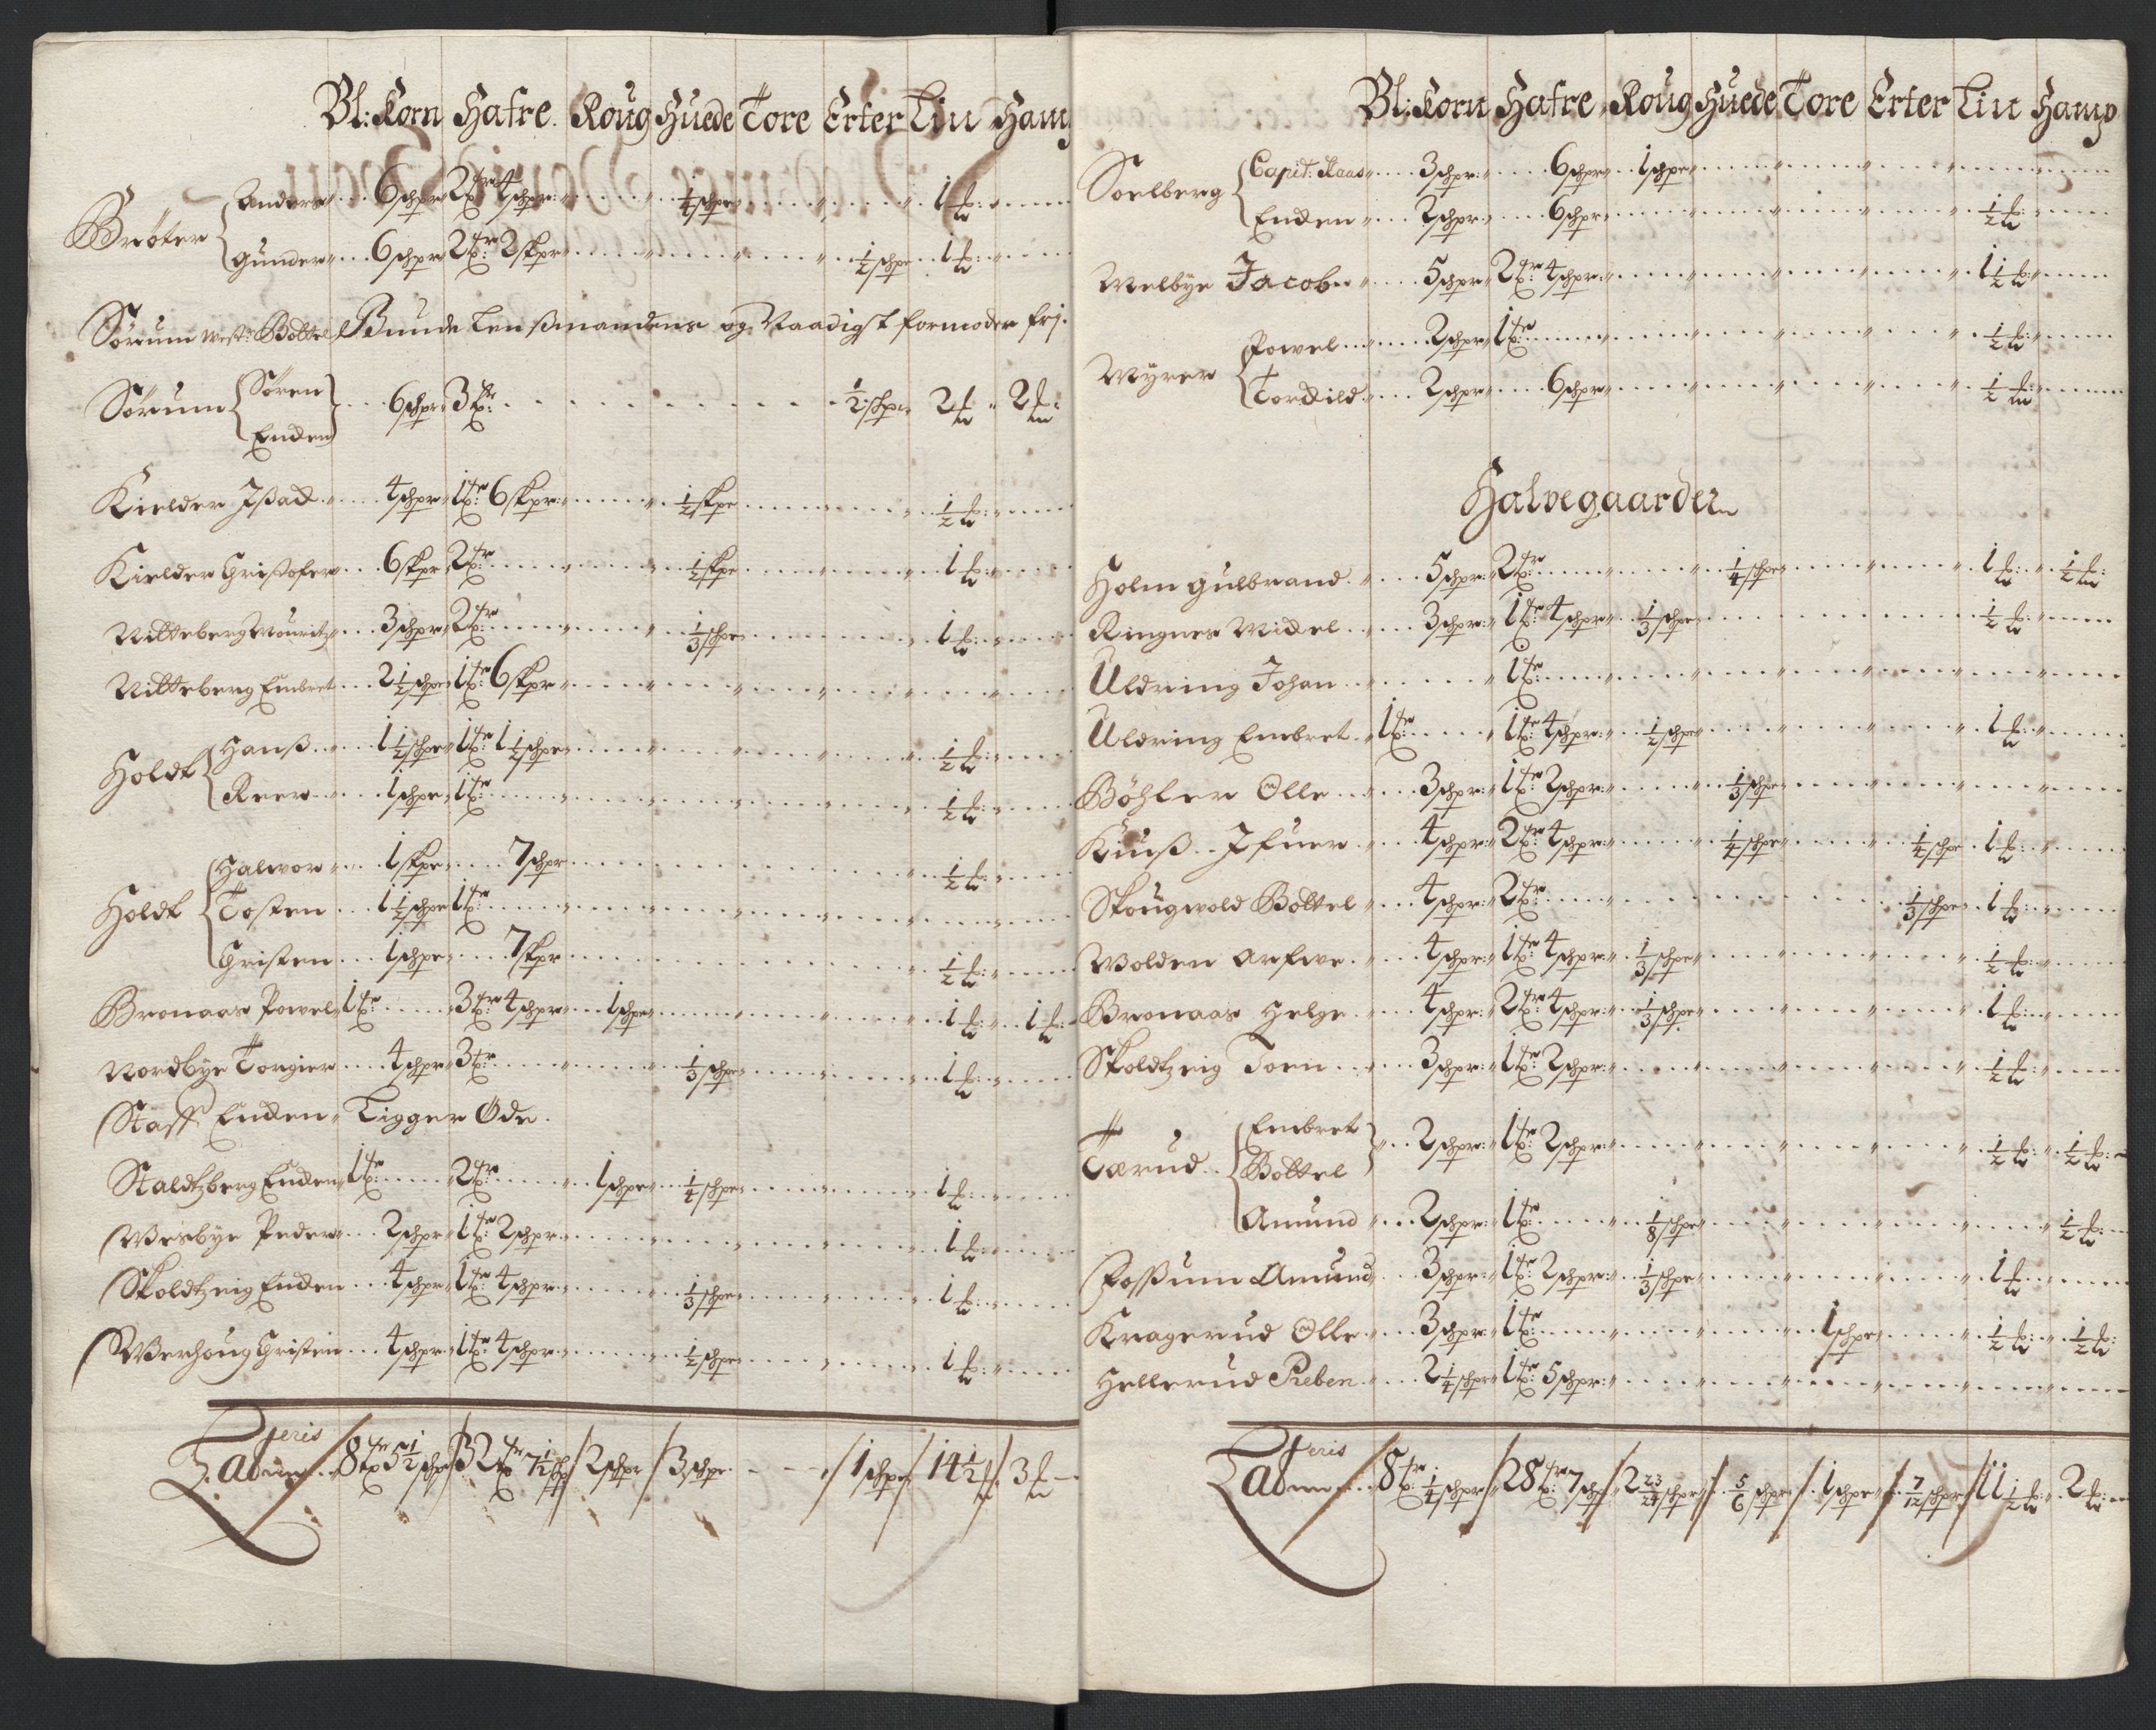 Bl: Korn Hafre Roug Huede Tore Erter Liin Hamp
Brøter { Anders 6 schpr 2 tr 4 schpr 1/4 schpe 1 lb
Gunder 6 schpr 2 tr 2 skpr 1/2 schpe 1 lb
Sørum West: Bottel Bunde Lensmandens og Naadigst formoder frj.
Sørum { Sören Enden } 6 schpr 3 tr 1/2 schpe 2 lb 2 lb
Kielder Issack 4 schpr 1 tr 6 skpr 1/2 skpe 1/2 lb
Kielder Cristofer 6 skpr 2 tr 1/2 skpe 1 lb
Nitteberg Mouritz 3 schpr 2 tr 1/3 schpe 1 lb
Nitteberg Embret 2 1/2 schpe 1 tr 6 skpr
Holdt { Hanß 1 1/2 schpe 1 tr 1 1/2 schpe 1/2 lb
Reer 1 schpe 1 tr 1/2 lb
Holdt { Halwor 1 skpe 7 schpr 1/2 lb
Tosten 1 1/2 schpe 1 tr
Cristen 1 schpe 7 skpr 1/2 lb
Bronaas Powel 1 tr 3 tr 4 schpr 1 schpe 1 lb 1 lb
Nordbye Torgier 4 schpr 3 tr 1/3 schpe 1 lb
Staff Enden Ligger Öde.
Staldtzberg Enden 1 tr 2 tr 1 schpe 1/4 schpe 1 lb
Westbye Peder 2 schpr 1 tr 2 schpr 1 lb
Skoldtzeig Enden 4 schpr 1 tr 4 schpr 1/3 schpe 1 lb
Werhoug Cristen 4 schpr 1 tr 4 schpr 1/2 schpe 1 lb
Lateris 8 tr 5 1/2 schpe 32 tr 7 1/2 schp 2 schpr 3 schpr 1 schpe 14 1/2 lb 3 lb
Bl: Korn Hafre Roug Huede Tore Erter Liin Hamp
Soelberg { Capit: Kaas 3 schpr 6 schpr 1 schpe
Enden 2 schpr 6 schpr 1/2 lb
Melbye Jacob 5 schpr 2 tr 4 schpr 1 1/2 lb
Myrer { Powel 2 schpr 1 tr 1/2 lb
Torkild 2 schpr 6 schpr 1/2 lb
Halvegaarder
Holm Gulbrand 5 schpr 2 tr 1/4 schpe 1 lb 1/2 lb
Ringnes Mickel 3 schpr 1 tr 4 schpr 1/3 schpe 1/2 lb
Uldring Johan 1 tr
Uldring Embret 1 tr 1 tr 4 schpr 1/2 schpe 1 lb
Böhler Olle 3 schpr 1 tr 2 schpr 1/3 schpe
Kiuß Ifuer 4 schpr 2 tr 4 schpr 1/4 schpe 1/4 schpe 1 lb
Skougwold Bottel 4 schpr 2 tr 1/3 schpe 1 lb
Wolden Arfwe 4 schpr 1 tr 4 schpr 1/3 schpe 1/2 lb
Bronaas Helge 4 schpr 2 tr 4 schpr 1/3 schpe 1 lb
Skoldtzeig Toen 3 schpr 1 tr 2 schpr 1/2 lb
Tærud { Embret Bottel } 2 schpr 1 tr 2 schpr 1/2 lb 1/2 lb
Amund 2 schpr 1 tr 1/8 schpe 1/2 lb
Fossum Amund 3 schpr 1 tr 2 schpr 1/3 schpe 1 lb
Kragerud Olle 3 schpr 1 tr 1 schpe 1/2 lb 1/2 lb
Hellerud Peben 2 1/4 schpe 1 tr 5 schpr
Lateris 8 tr 1/4 schpe 28 tr 7 schp 2 23/24 schpe 5/6 schpe 1 schpe 7/12 schpe 11 1/2 lb 2 lb